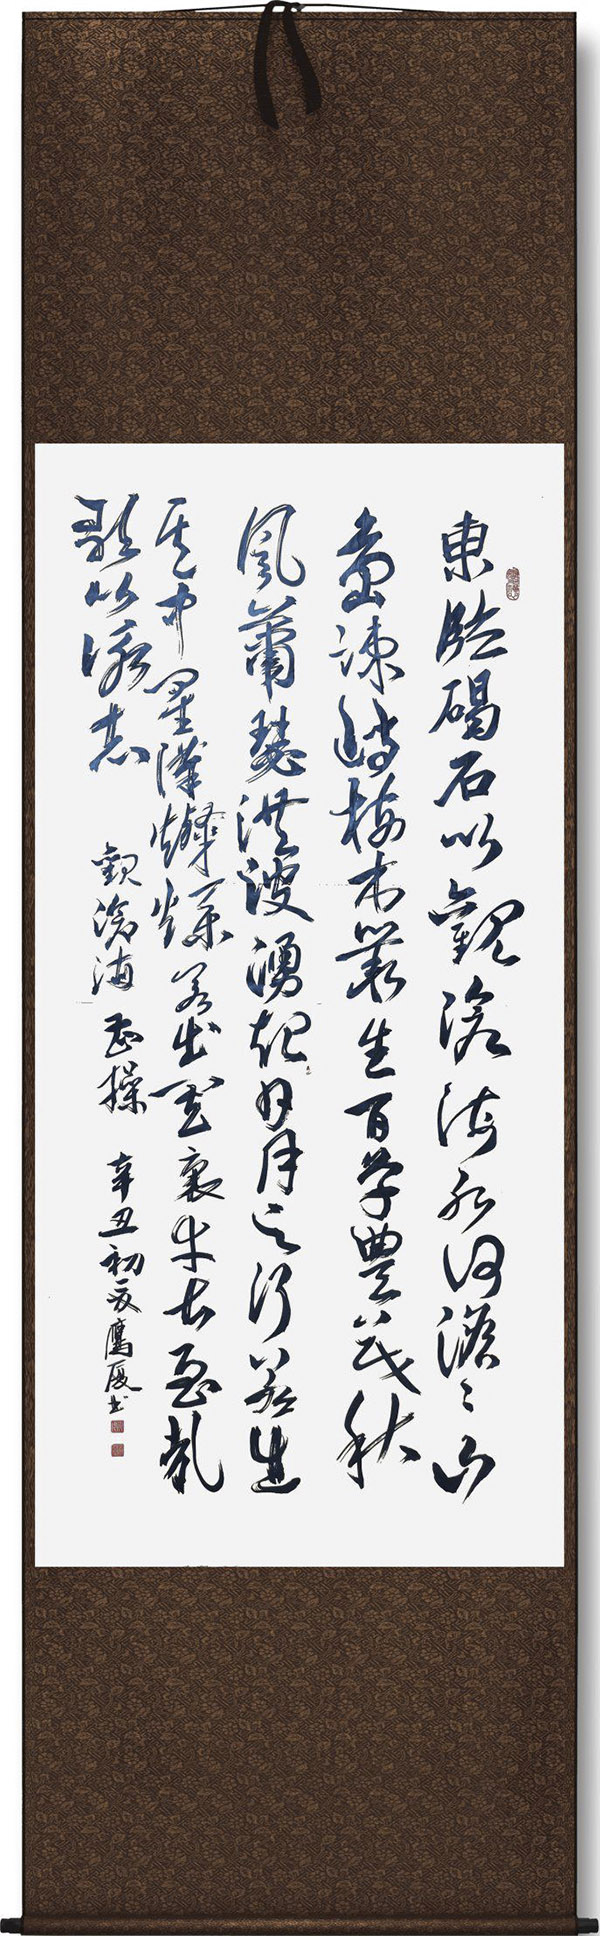 東臨碣石以觀滄海水何澹々山
島竦峙樹木叢生百草豐茂秋
風蕭瑟洪波湧起日月之行若出
其中星漢燦爛若出其裏幸甚至哉
歌以詠志
觀滄海 曹操 辛丑初夏鷹厦书